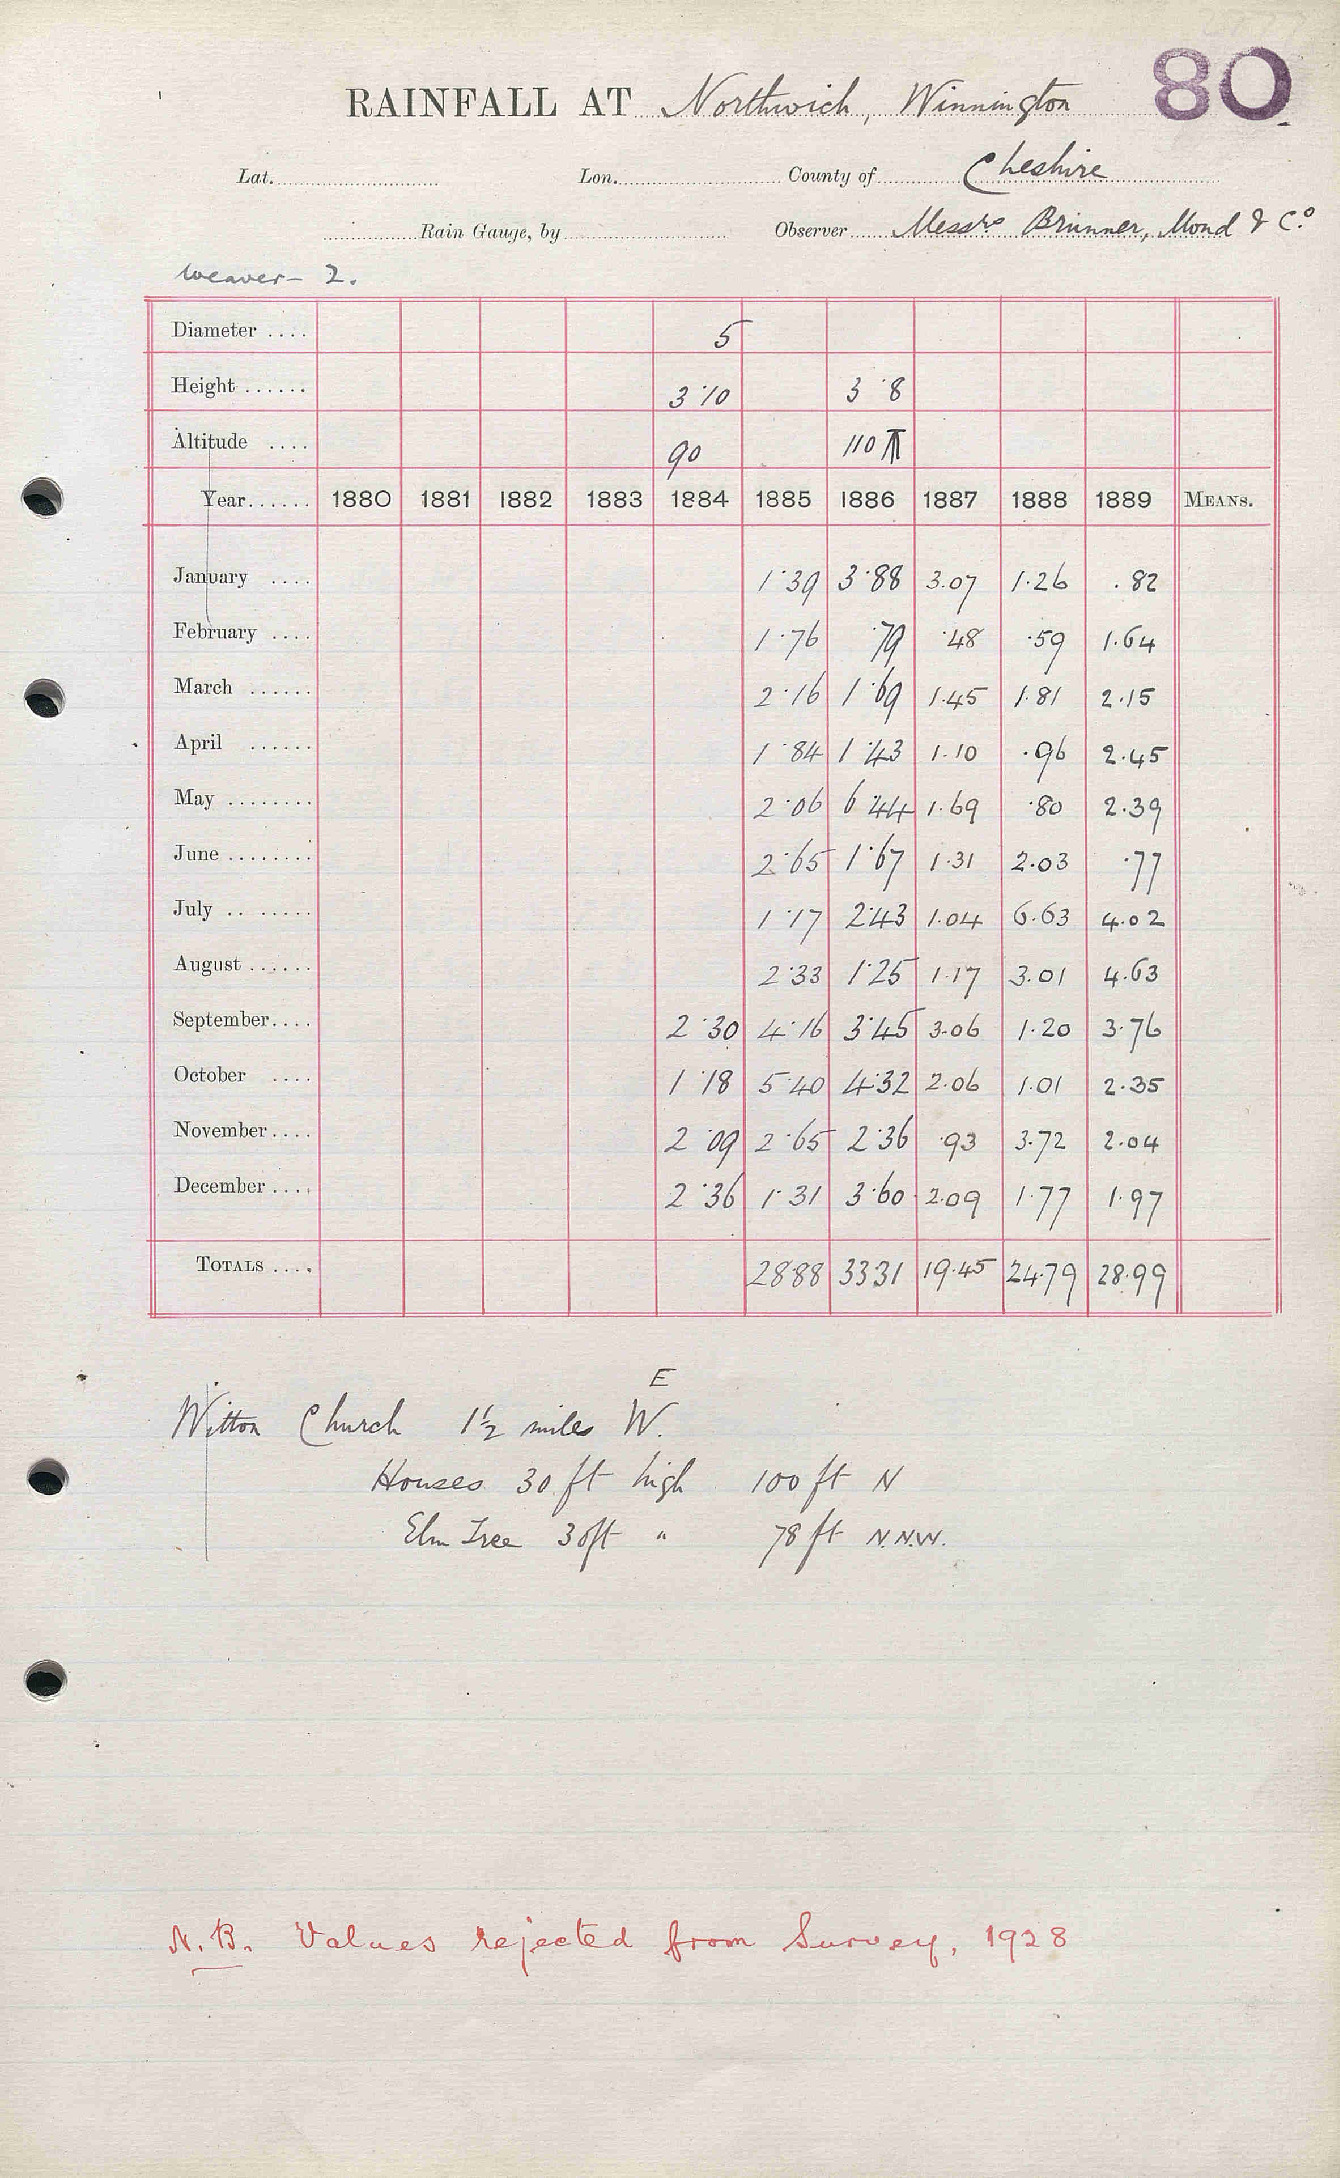 80
RAINFALL AT Northwich, Winnington
Lat. Lon. County of Cheshire
Rain Gauge, by Observer Messrs Brunner, Mond & Co.
Weaver - 2.
Diameter .... 5
Height ...... 3·10 3·8
Altitude .... 90 110
Year...... 1880 1881 1882 1883 1884 1885 1886 1887 1888 1889 MEANS.
January .... 1·39 3·88 3.07 1·26 .82
February .... 1·76 ·79 ·48 ·59 1·64
March ...... 2·16 1·69 1·45 1·81 2·15
April ...... 1·84 1·43 1·10 ·96 2·45
May ........ 2·06 6·44 1·69 ·80 2·39
June ........ 2·65 1·67 1·31 2·03 ·77
July .. ...... 1·17 2·43 1·04 6·63 4·02
August ...... 2·33 1·25 1·17 3·01 4·63
September.... 2·30 4·16 3·45 3·06 1·20 3·76
October .... 1·18 5·40 4·32 2·06 1·01 2·35
November.... 2·09 2·65 2·36 ·93 3·72 2·04
December.... 2·36 1·31 3·60 2·09 1·77 1·97
TOTALS .... 28·88 33·31 19·45 24·79 28·99
E
Witton Church 1½ miles W.
Houses 30 ft high 100 ft N
Elm Tree 30ft " 78 ft N.N.W.
N.B. Values rejected from Survey, 1928